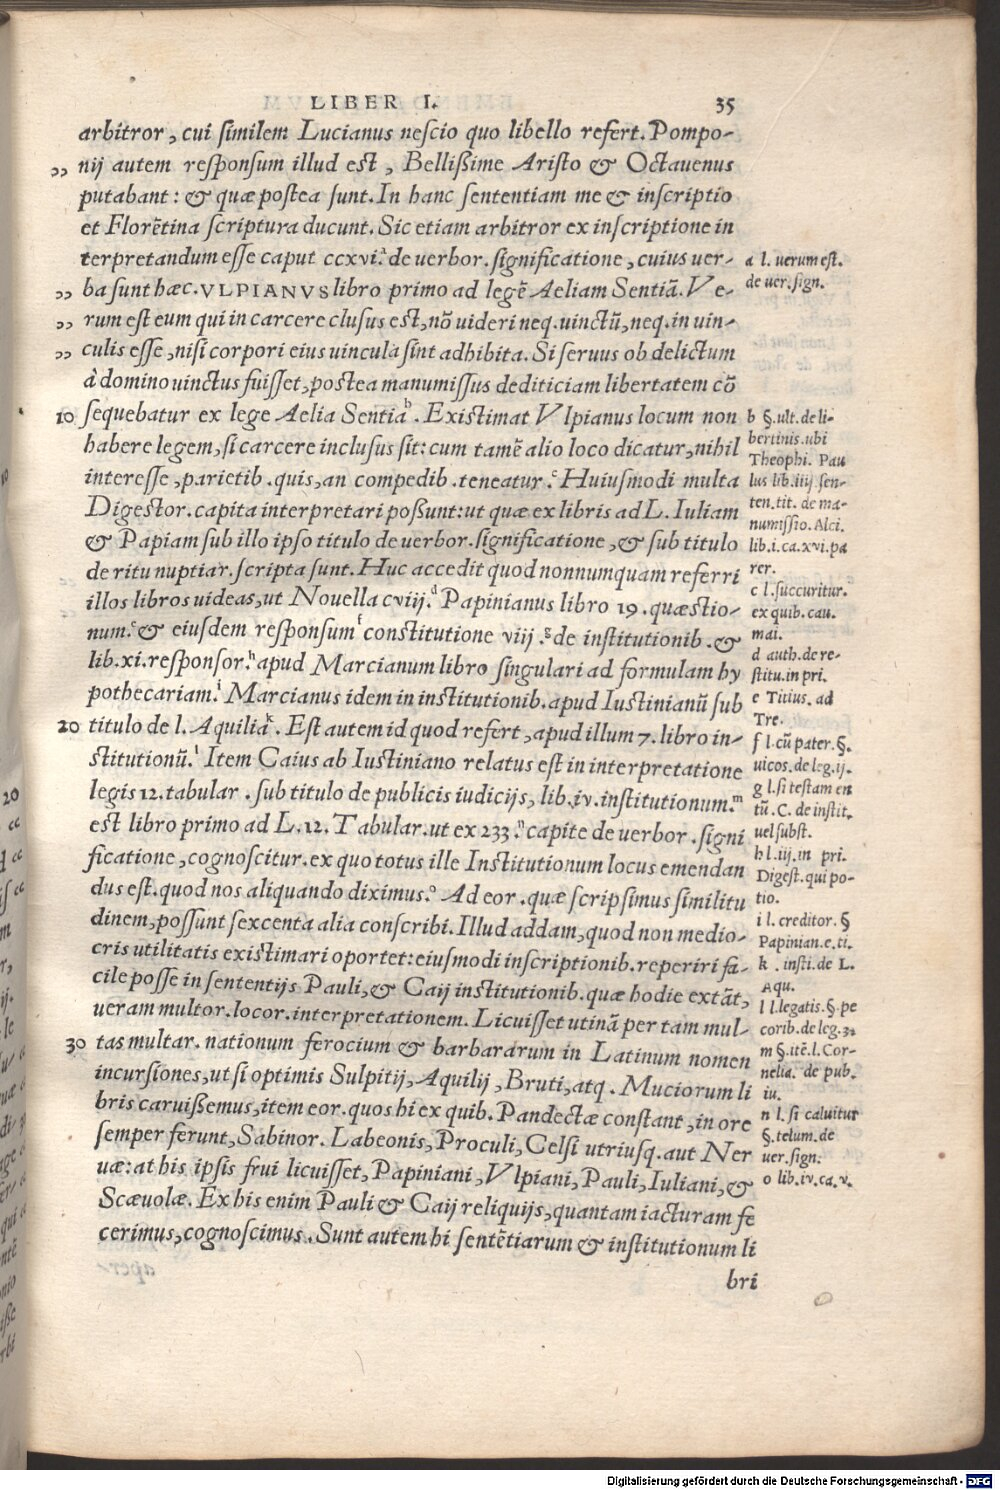 LIBER I. 35
arbitror, cui similem Lucianus nescio quo libello refert. Pompo-
„ nij autem responsum illud est, Bellißime Aristo & Octauenus
putabant: & quæ postea sunt. In hanc sententiam me & inscriptio
et Florẽtina scriptura ducunt. Sic etiam arbitror ex inscriptione in
terpretandum esse caput ccxvi.ᵃ de uerbor. significatione, cuius uer-
„ ba sunt hæc. VLPIANVS libro primo ad legẽ Aeliam Sentiã. Ve-
„ rum est eum qui in carcere clusus est, nõ uideri neq. uinctũ, neq. in uin-
„ culis esse, nisi corpori eius uincula sint adhibita. Si seruus ob delictum
à domino uinctus fuisset, postea manumissus dediticiam libertatem cõ
10 sequebatur ex lege Aelia Sentiaᵇ. Existimat Vlpianus locum non
habere legem, si carcere inclusus sit: cum tamẽ alio loco dicatur, nihil
interesse, parietib. quis, an compedib. teneatur.ᶜ Huiusmodi multa
Digestor. capita interpretari poßunt: ut quæ ex libris ad L. Iuliam
& Papiam sub illo ipso titulo de uerbor. significatione, & sub titulo
de ritu nuptiar. scripta sunt. Huc accedit quod nonnumquam referri
illos libros uideas, ut Nouella cviij.ᵈ Papinianus libro 19. quæstio-
num.ᵉ & eiusdem responsumᶠ constitutione viij.ᵍ de institutionib. &
lib. xi. responsor.ʰ apud Marcianum libro singulari ad formulam hy
pothecariam.ⁱ Marcianus idem in institutionib. apud Iustinianũ sub
20 titulo de l. Aquiliaᵏ. Est autem id quod refert, apud illum 7. libro in-
stitutionũ.ˡ Item Caius ab Iustiniano relatus est in interpretatione
legis 12. tabular. sub titulo de publicis iudicijs, lib. iv. institutionum.ᵐ
est libro primo ad L. 12. Tabular. ut ex 233.ⁿ capite de uerbor. signi
ficatione, cognoscitur. ex quo totus ille Institutionum locus emendan
dus est. quod nos aliquando diximus.ᵒ Ad eor. quæ scripsimus similitu
dinem, possunt sexcenta alia conscribi. Illud addam, quod non medio-
cris utilitatis existimari oportet: eiusmodi inscriptionib. reperiri fa-
cile posse in sententijs Pauli, & Caij institutionib. quæ hodie extãt,
ueram multor. locor. interpretationem. Licuisset utinã per tam mul-
30 tas multar. nationum ferocium & barbararum in Latinum nomen
incursiones, ut si optimis Sulpitij, Aquilij, Bruti, atq. Muciorum li
bris caruißemus, item eor. quos hi ex quib. Pandectæ constant, in ore
semper ferunt, Sabinor. Labeonis, Proculi, Celsi utriusq. aut Ner
uæ: at his ipsis frui licuisset, Papiniani, Vlpiani, Pauli, Iuliani, &
Scæuolæ. Ex his enim Pauli & Caij reliquijs, quantam iacturam fe
cerimus, cognoscimus. Sunt autem hi sentẽtiarum & institutionum li
bri
a l. uerum est.
de uer. sign.
b §. ult. de li-
bertinis. ubi
Theophi. Pau
lus lib. iiij sen-
ten. tit. de ma-
numissio. Alci.
lib. i. ca. xvi. pa
rer.
c l. succuritur.
ex quib. cau.
mai.
d auth. de re-
stitu. in pri.
e Titius. ad
Tre.
f l. cũ pater. §.
uicos. de leg. ij.
g l. si testam en
tũ. C. de instit.
uel subst.
h l. iij. in pri.
Digest. qui po-
tio.
i l. creditor. §
Papinian. e. ti.
k . insti. de L.
Aqu.
l l. legatis. §. pe
corib. de leg. 3.
m §. itẽ. l. Cor-
nelia. de pub.
iu.
n l. si caluitur
§. telum. de
uer. sign.
o lib. iv. ca. v.
Digitalisierung gefördert durch die Deutsche Forschungsgemeinschaft - DFG